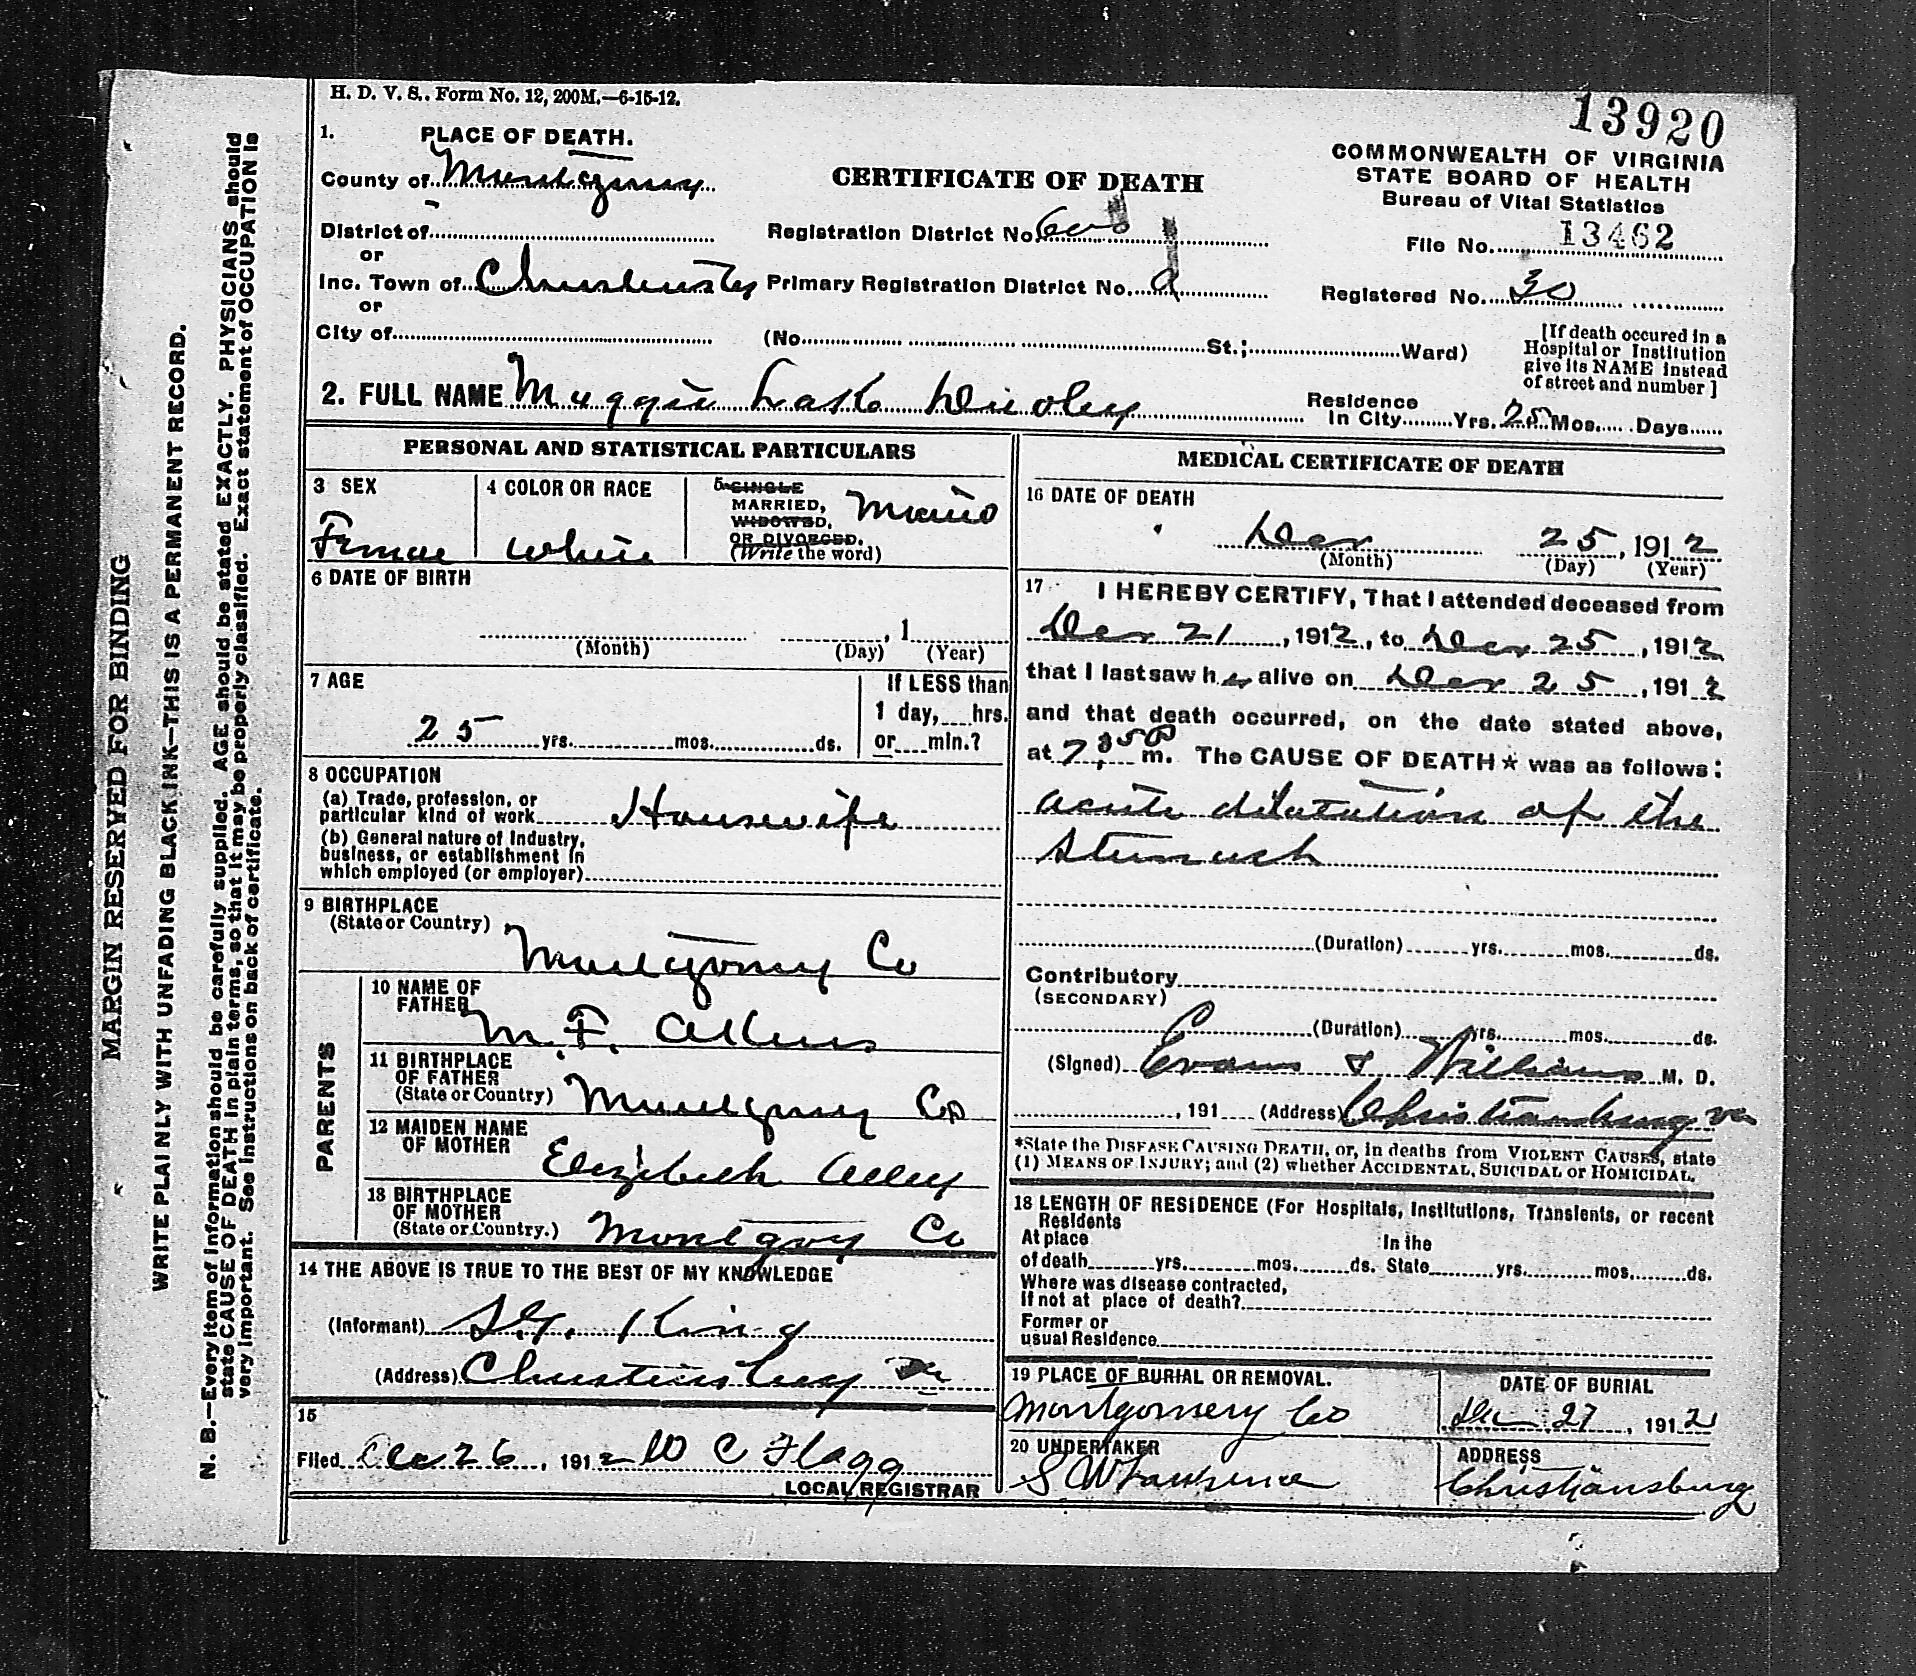 H. D. V. S., Form No. 12, 200M.—6-15-12.
13920
1. PLACE OF DEATH.
County of Montgomery
CERTIFICATE OF DEATH
COMMONWEALTH OF VIRGINIA
STATE BOARD OF HEALTH
Bureau of Vital Statistics
District of
Registration District No. 600
File No. 13462
or
Inc. Town of
Primary Registration District No.
Registered No. 30
or
City of (No. St.; Ward)
[If death occured in a
Hospital or Institution
give its NAME instead
of street and number]
2. FULL NAME Maggie
Residence
In City Yrs. 25 Mos. Days
PERSONAL AND STATISTICAL PARTICULARS
3 SEX
Female
4 COLOR OR RACE
White
5 SINGLE
MARRIED,
WIDOWED,
OR DIVORCED.
(Write the word)
6 DATE OF BIRTH
, 1
(Month) (Day) (Year)
7 AGE
25 yrs. mos. ds.
If LESS than
1 day, hrs.
or min.?
8 OCCUPATION
(a) Trade, profession, or
particular kind of work Housewife
(b) General nature of Industry,
business, or establishment in
which employed (or employer)
9 BIRTHPLACE
(State or Country)
Montgomery Co
PARENTS
10 NAME OF
FATHER
M. F.
11 BIRTHPLACE
OF FATHER
(State or Country) Montgomery Co
12 MAIDEN NAME
OF MOTHER
Elizabeth Alley
13 BIRTHPLACE
OF MOTHER
(State or Country.) Montgomery Co
14 THE ABOVE IS TRUE TO THE BEST OF MY KNOWLEDGE
(Informant) King
(Address) Christiansburg Va
15
Filed Dec 26, 1912 W C Flagg
LOCAL REGISTRAR
MEDICAL CERTIFICATE OF DEATH
16 DATE OF DEATH
Dec 25, 1912
(Month) (Day) (Year)
17 I HEREBY CERTIFY, That I attended deceased from
Dec 21, 1912, to Dec 25, 1912
that I last saw her alive on Dec 25, 1912
and that death occurred, on the date stated above,
at m. The CAUSE OF DEATH* was as follows:
acute dilatation of the
stomach
(Duration) yrs. mos. ds.
Contributory
(SECONDARY)
(Duration) yrs. mos. ds.
(Signed) Evans & Williams M. D.
, 191 (Address) Christiansburg Va
*State the DISEASE CAUSING DEATH, or, in deaths from VIOLENT CAUSES, state
(1) MEANS OF INJURY; and (2) whether ACCIDENTAL, SUICIDAL or HOMICIDAL.
18 LENGTH OF RESIDENCE (For Hospitals, Institutions, Transients, or recent
Residents
At place In the
of death yrs. mos. ds. State yrs. mos. ds.
Where was disease contracted,
If not at place of death?
Former or
usual Residence
19 PLACE OF BURIAL OR REMOVAL.
Montgomery Co
DATE OF BURIAL
Dec 27, 1912
20 UNDERTAKER
S W Lawrence
ADDRESS
Christiansburg
MARGIN RESERVED FOR BINDING
WRITE PLAINLY WITH UNFADING BLACK INK—THIS IS A PERMANENT RECORD.
N. B.—Every item of information should be carefully supplied. AGE should be stated EXACTLY. PHYSICIANS should
state CAUSE OF DEATH in plain terms, so that it may be properly classified. Exact statement of OCCUPATION is
very important. See instructions on back of certificate.